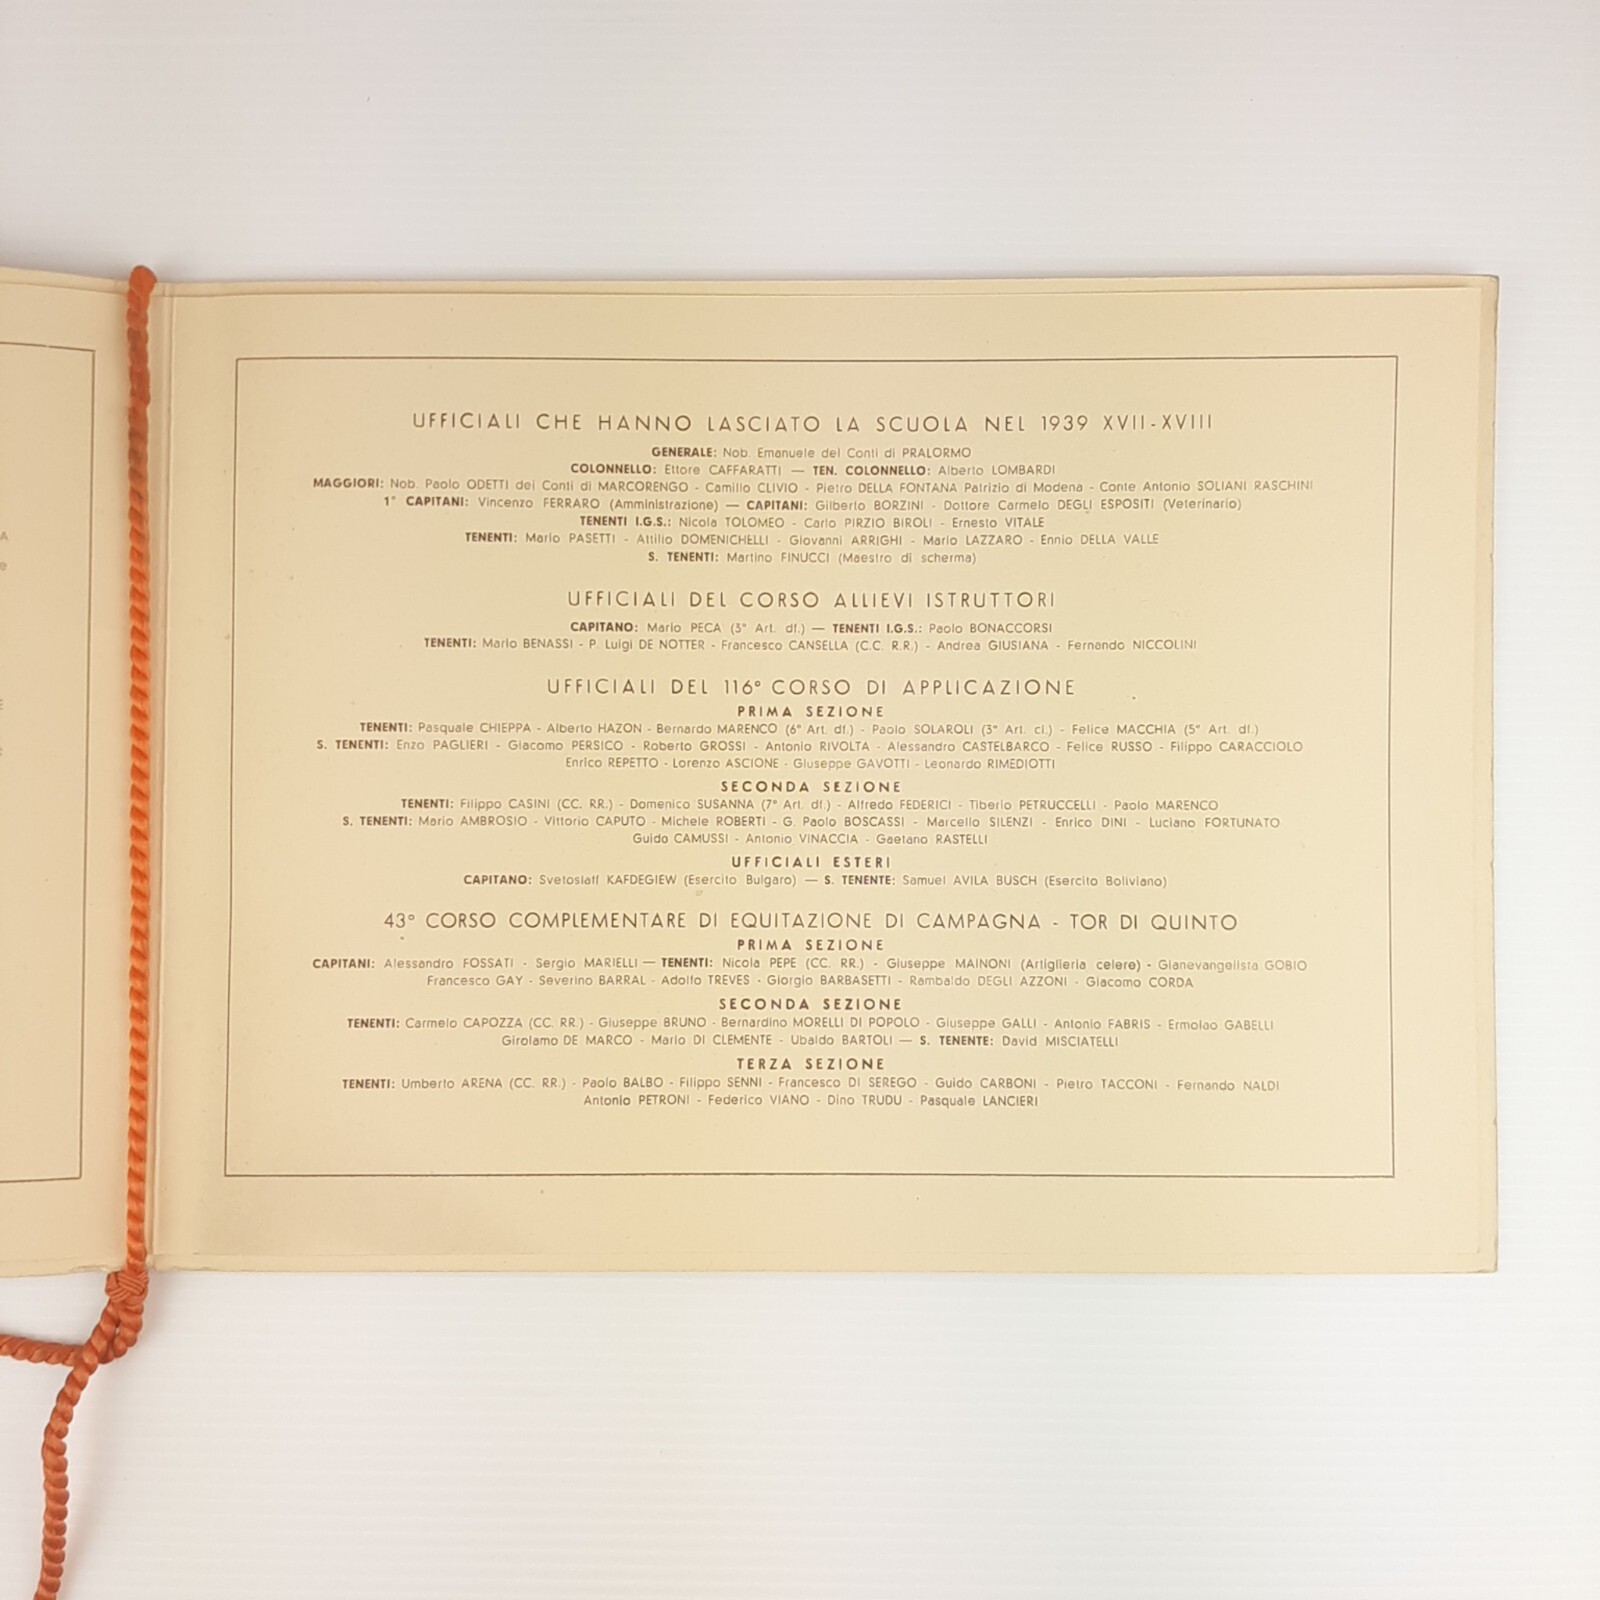 UFFICIALI CHE HANNO LASCIATO LA SCUOLA NEL 1939 XVII-XVIII
GENERALE: Nob. Emanuele dei Conti di PRALORMO
COLONNELLO: Ettore CAFFARATTI — TEN. COLONNELLO: Alberto LOMBARDI
MAGGIORI: Nob. Paolo ODETTI dei Conti di MARCORENGO - Camillo CLIVIO - Pietro DELLA FONTANA Patrizio di Modena - Conte Antonio SOLIANI RASCHINI
1° CAPITANI: Vincenzo FERRARO (Amministrazione) — CAPITANI: Gilberto BORZINI - Dottore Carmelo DEGLI ESPOSITI (Veterinario)
TENENTI I.G.S.: Nicola TOLOMEO - Carlo PIRZIO BIROLI - Ernesto VITALE
TENENTI: Mario PASETTI - Attilio DOMENICHELLI - Giovanni ARRIGHI - Mario LAZZARO - Ennio DELLA VALLE
S. TENENTI: Martino FINUCCI (Maestro di scherma)
UFFICIALI DEL CORSO ALLIEVI ISTRUTTORI
CAPITANO: Mario PECA (3° Art. df.) — TENENTI I.G.S.: Paolo BONACCORSI
TENENTI: Mario BENASSI - P. Luigi DE NOTTER - Francesco CANSELLA (C.C. R.R.) - Andrea GIUSIANA - Fernando NICCOLINI
UFFICIALI DEL 116° CORSO DI APPLICAZIONE
PRIMA SEZIONE
TENENTI: Pasquale CHIEPPA - Alberto HAZON - Bernardo MARENCO (6° Art. df.) - Paolo SOLAROLI (3° Art. cl.) - Felice MACCHIA (5° Art. df.)
S. TENENTI: Enzo PAGLIERI - Giacomo PERSICO - Roberto GROSSI - Antonio RIVOLTA - Alessandro CASTELBARCO - Felice RUSSO - Filippo CARACCIOLO
Enrico REPETTO - Lorenzo ASCIONE - Giuseppe GAVOTTI - Leonardo RIMEDIOTTI
SECONDA SEZIONE
TENENTI: Filippo CASINI (CC. RR.) - Domenico SUSANNA (7° Art. df.) - Alfredo FEDERICI - Tiberio PETRUCCELLI - Paolo MARENCO
S. TENENTI: Mario AMBROSIO - Vittorio CAPUTO - Michele ROBERTI - G. Paolo BOSCASSI - Marcello SILENZI - Enrico DINI - Luciano FORTUNATO
Guido CAMUSSI - Antonio VINACCIA - Gaetano RASTELLI
UFFICIALI ESTERI
CAPITANO: Svetoslaff KAFDEGIEW (Esercito Bulgaro) — S. TENENTE: Samuel AVILA BUSCH (Esercito Boliviano)
43° CORSO COMPLEMENTARE DI EQUITAZIONE DI CAMPAGNA - TOR DI QUINTO
PRIMA SEZIONE
CAPITANI: Alessandro FOSSATI - Sergio MARIELLI — TENENTI: Nicola PEPE (CC. RR.) - Giuseppe MAINONI (Artiglieria celere) - Gianevangelista GOBIO
Francesco GAY - Severino BARRAL - Adolfo TREVES - Giorgio BARBASETTI - Rambaldo DEGLI AZZONI - Giacomo CORDA
SECONDA SEZIONE
TENENTI: Carmelo CAPOZZA (CC. RR.) - Giuseppe BRUNO - Bernardino MORELLI DI POPOLO - Giuseppe GALLI - Antonio FABRIS - Ermolao GABELLI
Girolamo DE MARCO - Mario DI CLEMENTE - Ubaldo BARTOLI — S. TENENTE: David MISCIATELLI
TERZA SEZIONE
TENENTI: Umberto ARENA (CC. RR.) - Paolo BALBO - Filippo SENNI - Francesco DI SEREGO - Guido CARBONI - Pietro TACCONI - Fernando NALDI
Antonio PETRONI - Federico VIANO - Dino TRUDU - Pasquale LANCIERI